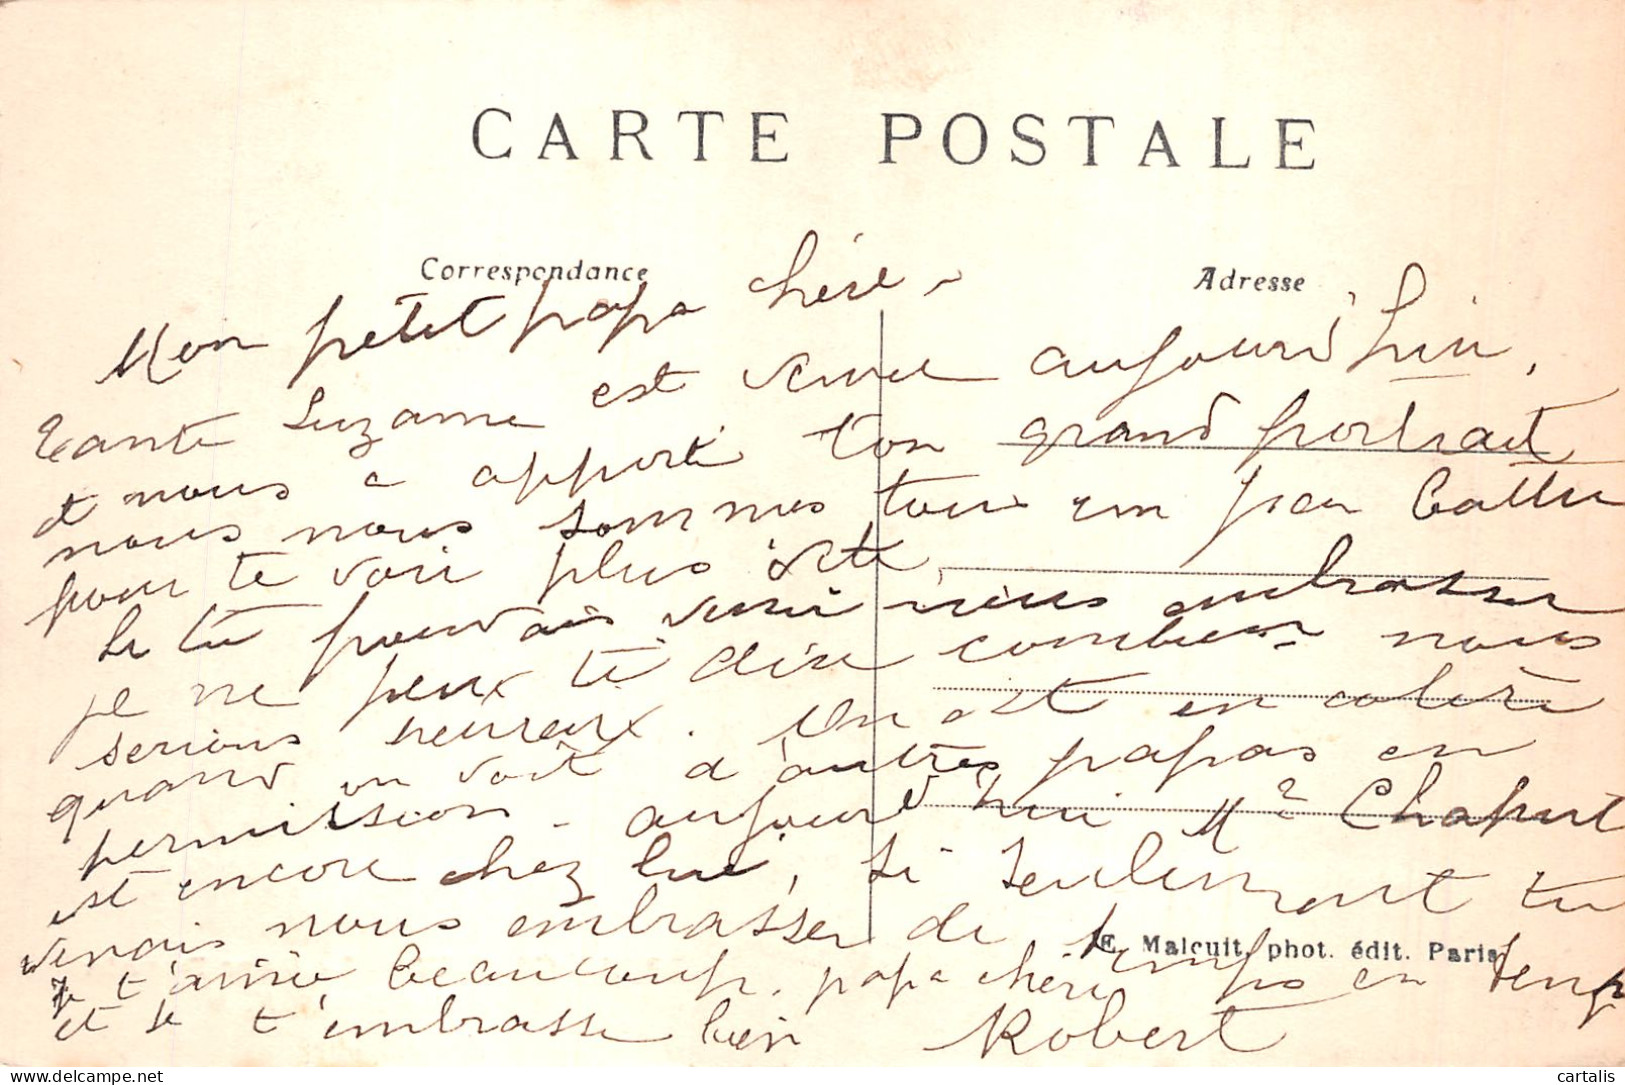 CARTE POSTALE
Correspondance
Adresse
Mon petit papa chéri -
tante Suzanne est venue aujourd'hui,
et nous a apporté ton grand portrait
nous nous sommes tous un peu battu
pour te voir plus vite
Si tu pouvais venir nous embrasser
je ne peux te dire combien nous
serions heureux. On est en colère
quand on voit d'autres papas en
permission - aujourd'hui Mr Chaput
est encore chez lui, si seulement tu
venais nous embrasser de temps en temps
Je t'aime beaucoup, papa chéri
et je t'embrasse bien Robert
E. Malcuit, phot. édit. Paris
cartalis